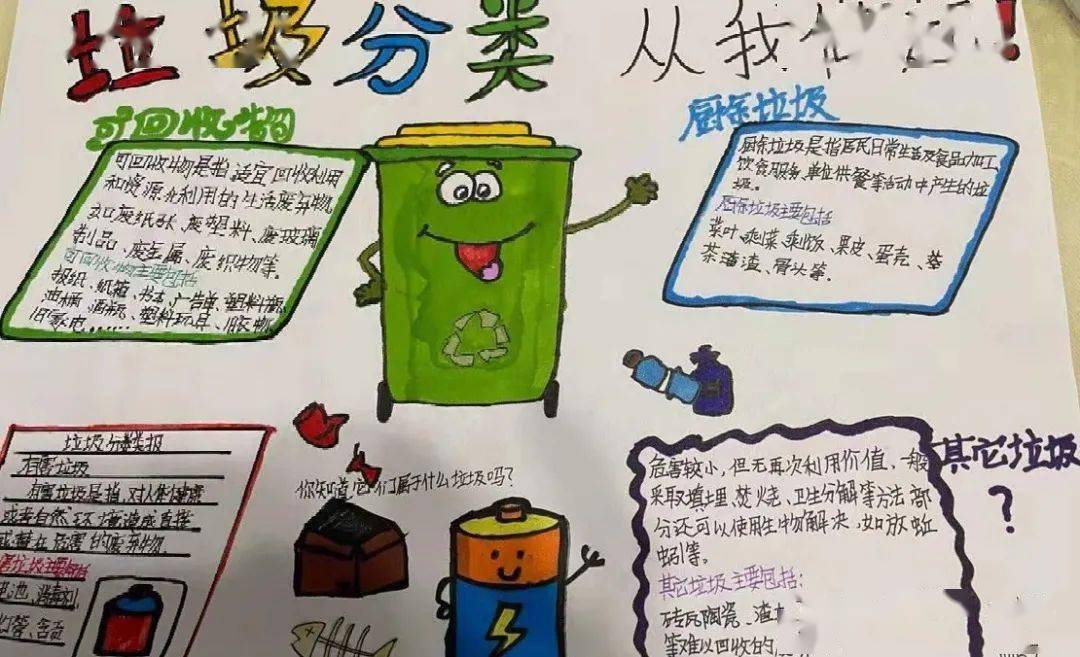 垃圾分类 从我做起!
可回收物
可回收物是指适宜回收利用
和资源再利用的生活废弃物,
如废纸张、废塑料、废玻璃
制品、废金属、废织物等。
可回收物主要包括
报纸、纸箱、书本、广告单、塑料瓶
油桶、酒瓶、塑料玩具、旧衣物
旧家电……
厨余垃圾
厨余垃圾是指居民日常生活及食品加工
饮食服务、单位供餐等活动中产生的垃
圾。
厨余垃圾主要包括
菜叶、剩菜、剩饭、果皮、蛋壳、茶
渣、骨头等。
垃圾分类报
有害垃圾
有害垃圾是指,对人体健康
或者自然环境造成直接
或潜在危害的废弃物。
害垃圾主要包括
电池、消毒剂
灯管、含
你知道它们属于什么垃圾吗?
其它垃圾
?
危害较小,但无再次利用价值、一般
采取填埋、焚烧、卫生分解等方法部
分还可以使用生物解决,如放蚯
蚓等。
其它垃圾主要包括:
砖瓦陶瓷、渣
等难以回收的